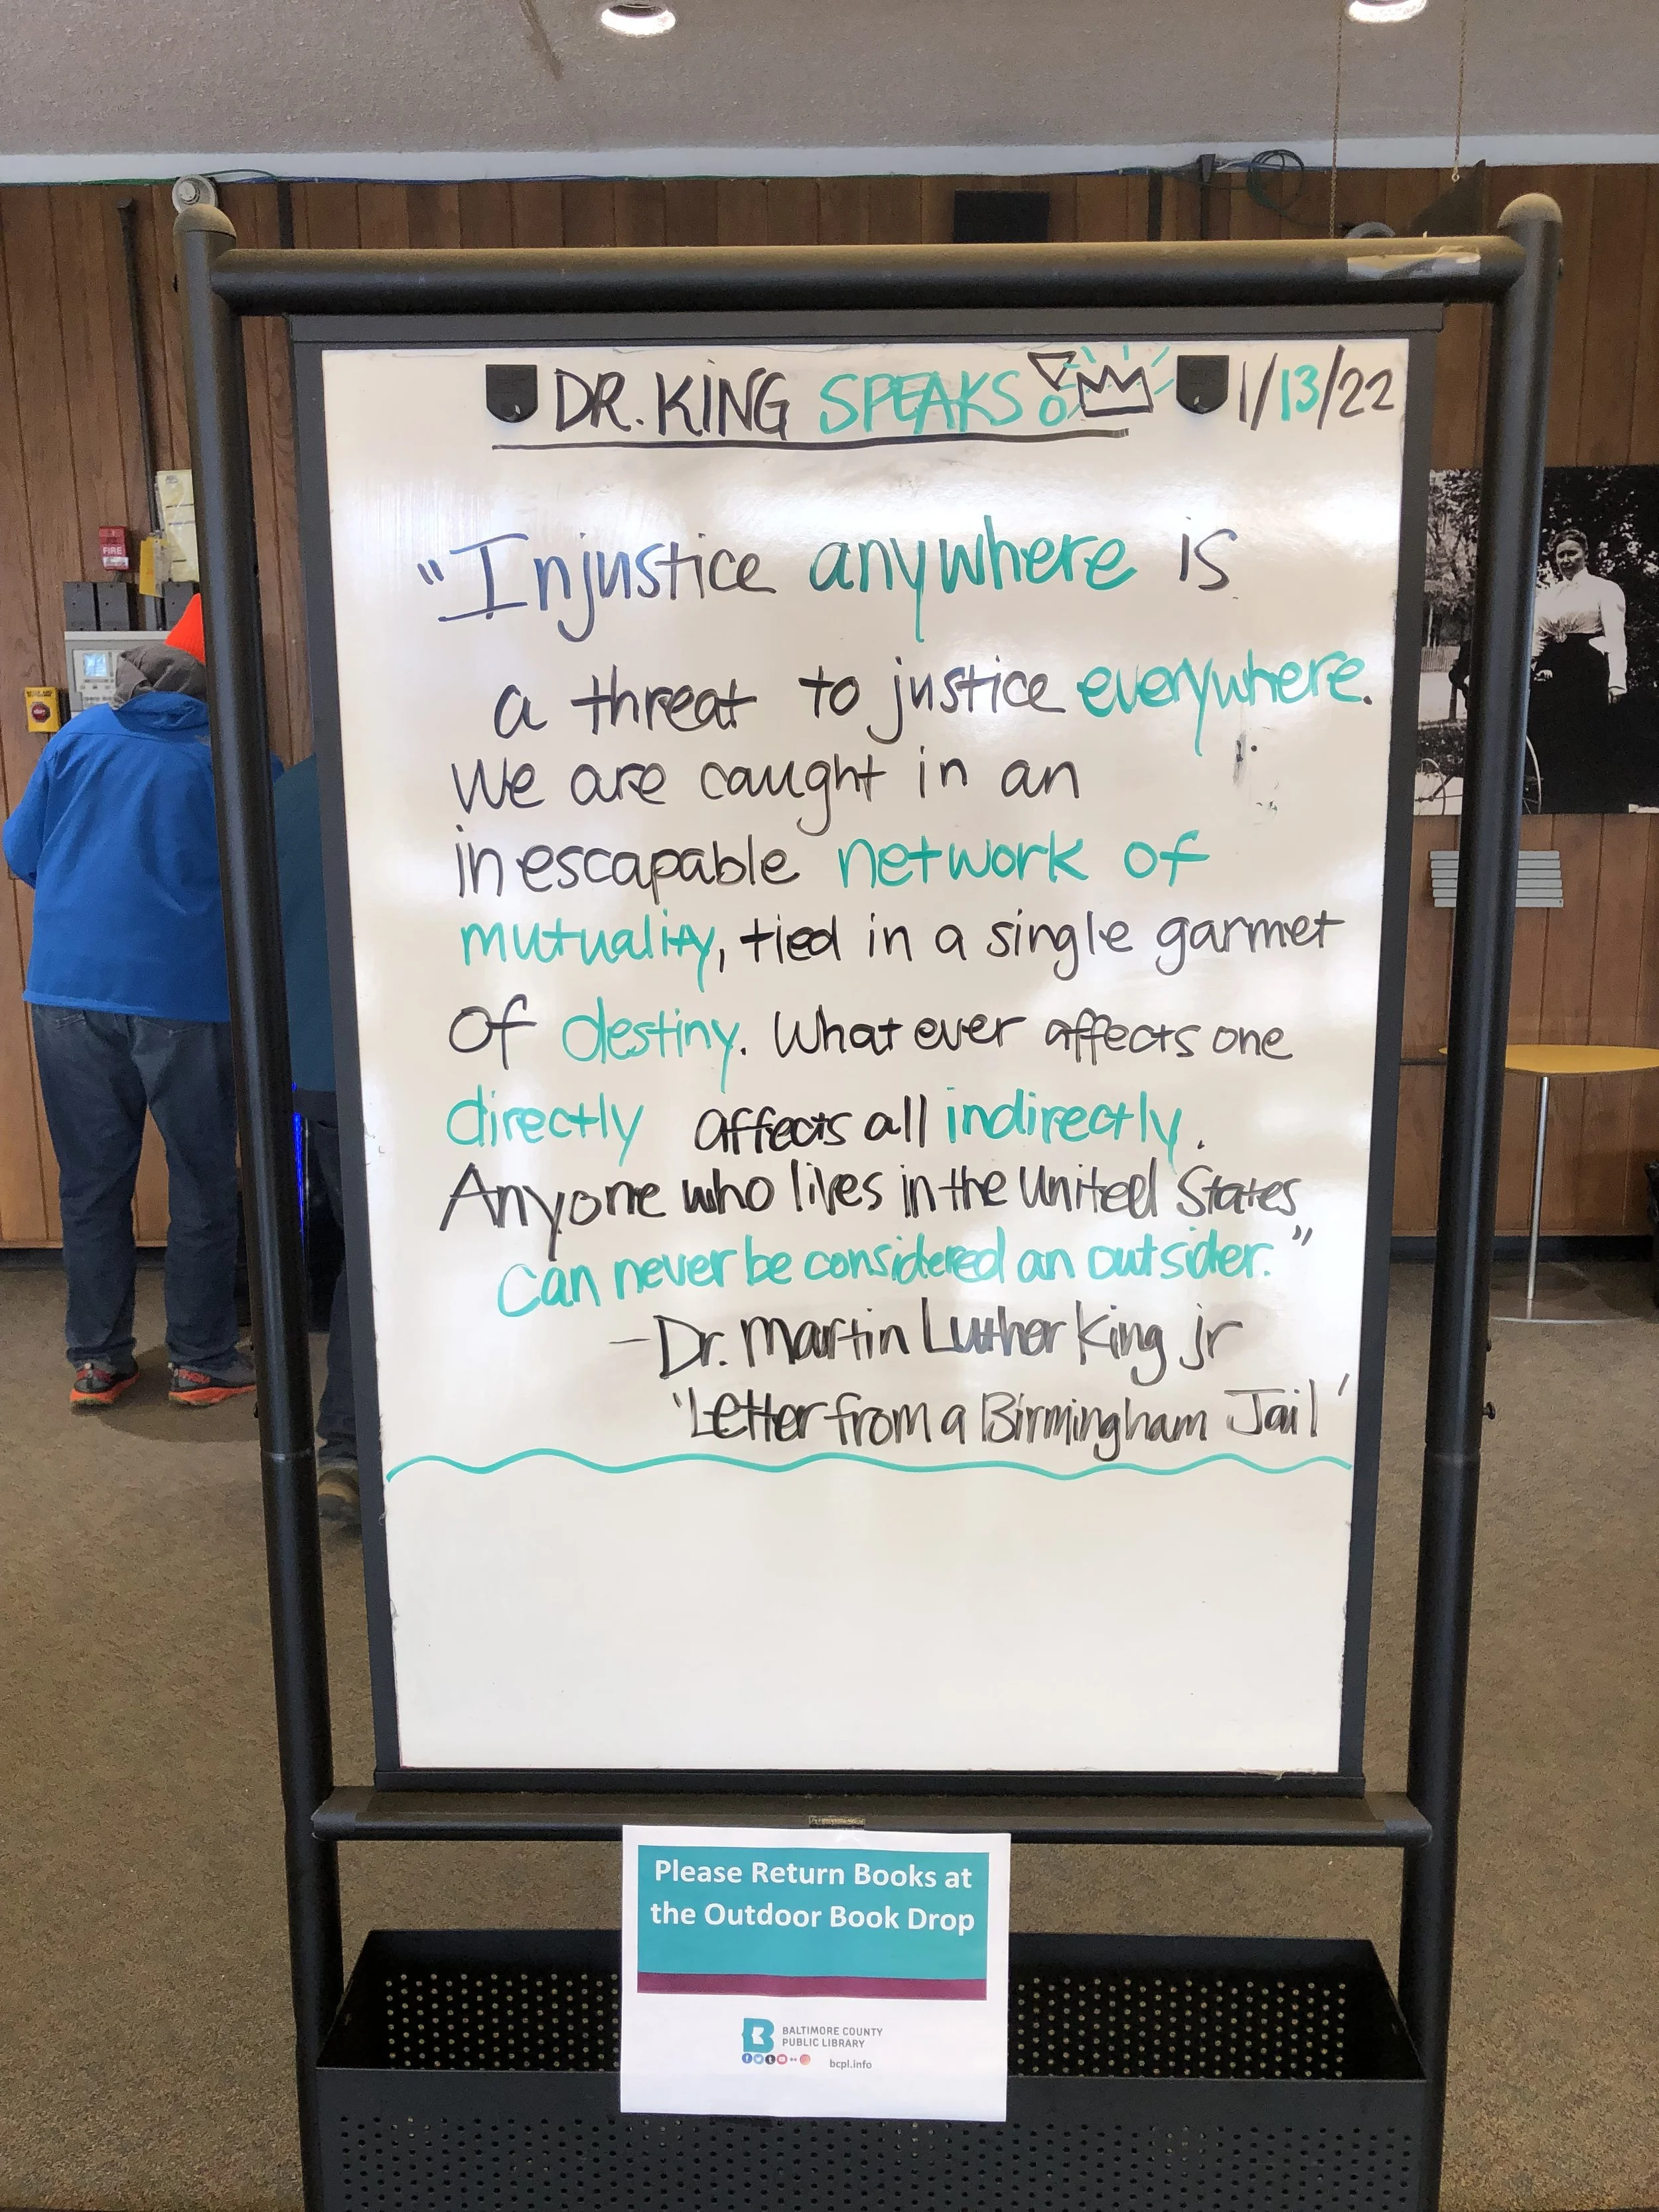 DR. KING SPEAKS! 1/13/22
"Injustice anywhere is
a threat to justice everywhere.
We are caught in an
inescapable network of
mutuality, tied in a single garmet
of destiny. Whatever affects one
directly affects all indirectly.
Anyone who lives in the United States
can never be considered an outsider."
-Dr. Martin Luther King jr
'Letter from a Birmingham Jail'
FIRE
Please Return Books at
the Outdoor Book Drop
BALTIMORE COUNTY
PUBLIC LIBRARY
bcpl.info